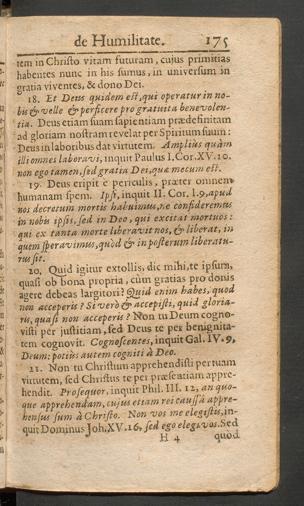 de Humilitate. 175
tem in Christo vitam futuram, cujus primitias
habentes nunc in his sumus, in universum in
gratia viventes, & dono Dei.
18. Et Deus quidem est, qui operatur in no-
bis & velle & perficere pro gratuita benevolen-
tia. Deus etiam suam sapientiam prædefinitam
ad gloriam nostram revelat per Spiritum suum:
Deus in laboribus dat virtutem. Amplius quàm
illi omnes laboravi, inquit Paulus I. Cor. XV. 10.
non ego tamen, sed gratia Dei, quæ mecum est.
19. Deus eripit è periculis, præter omnem
humanam spem. Ipsi, inquit II. Cor. I. 9, apud
nos decretum mortis habuimus, ne confideremus
in nobis ipsis, sed in Deo, qui excitat mortuos:
qui ex tanta morte liberavit nos, & liberat, in
quem speravimus, quòd & in posterum liberatu-
rus sit.
20. Quid igitur extollis, dic mihi, te ipsum,
quasi ob bona propria, cùm gratias pro donis
agere debeas largitori? Quid enim habes, quod
non acceperis? Si verò & accepisti, quid gloria-
ris, quasi non acceperis? Non tu Deum cogno-
visti per justitiam, sed Deus te per benignita-
tem cognovit. Cognoscentes, inquit Gal. IV. 9,
Deum: potiùs autem cogniti à Deo.
21. Non tu Christum apprehendisti per tuam
virtutem, sed Christus te per præsentiam appre-
hendit. Prosequor, inquit Phil. III. 12, an quo-
que apprehendam, cujus etiam rei caussâ appre-
hensus sum à Christo. Non vos me elegistis, in-
quit Dominus Joh. XV. 16, sed ego elegi vos. Sed
H 4 quod